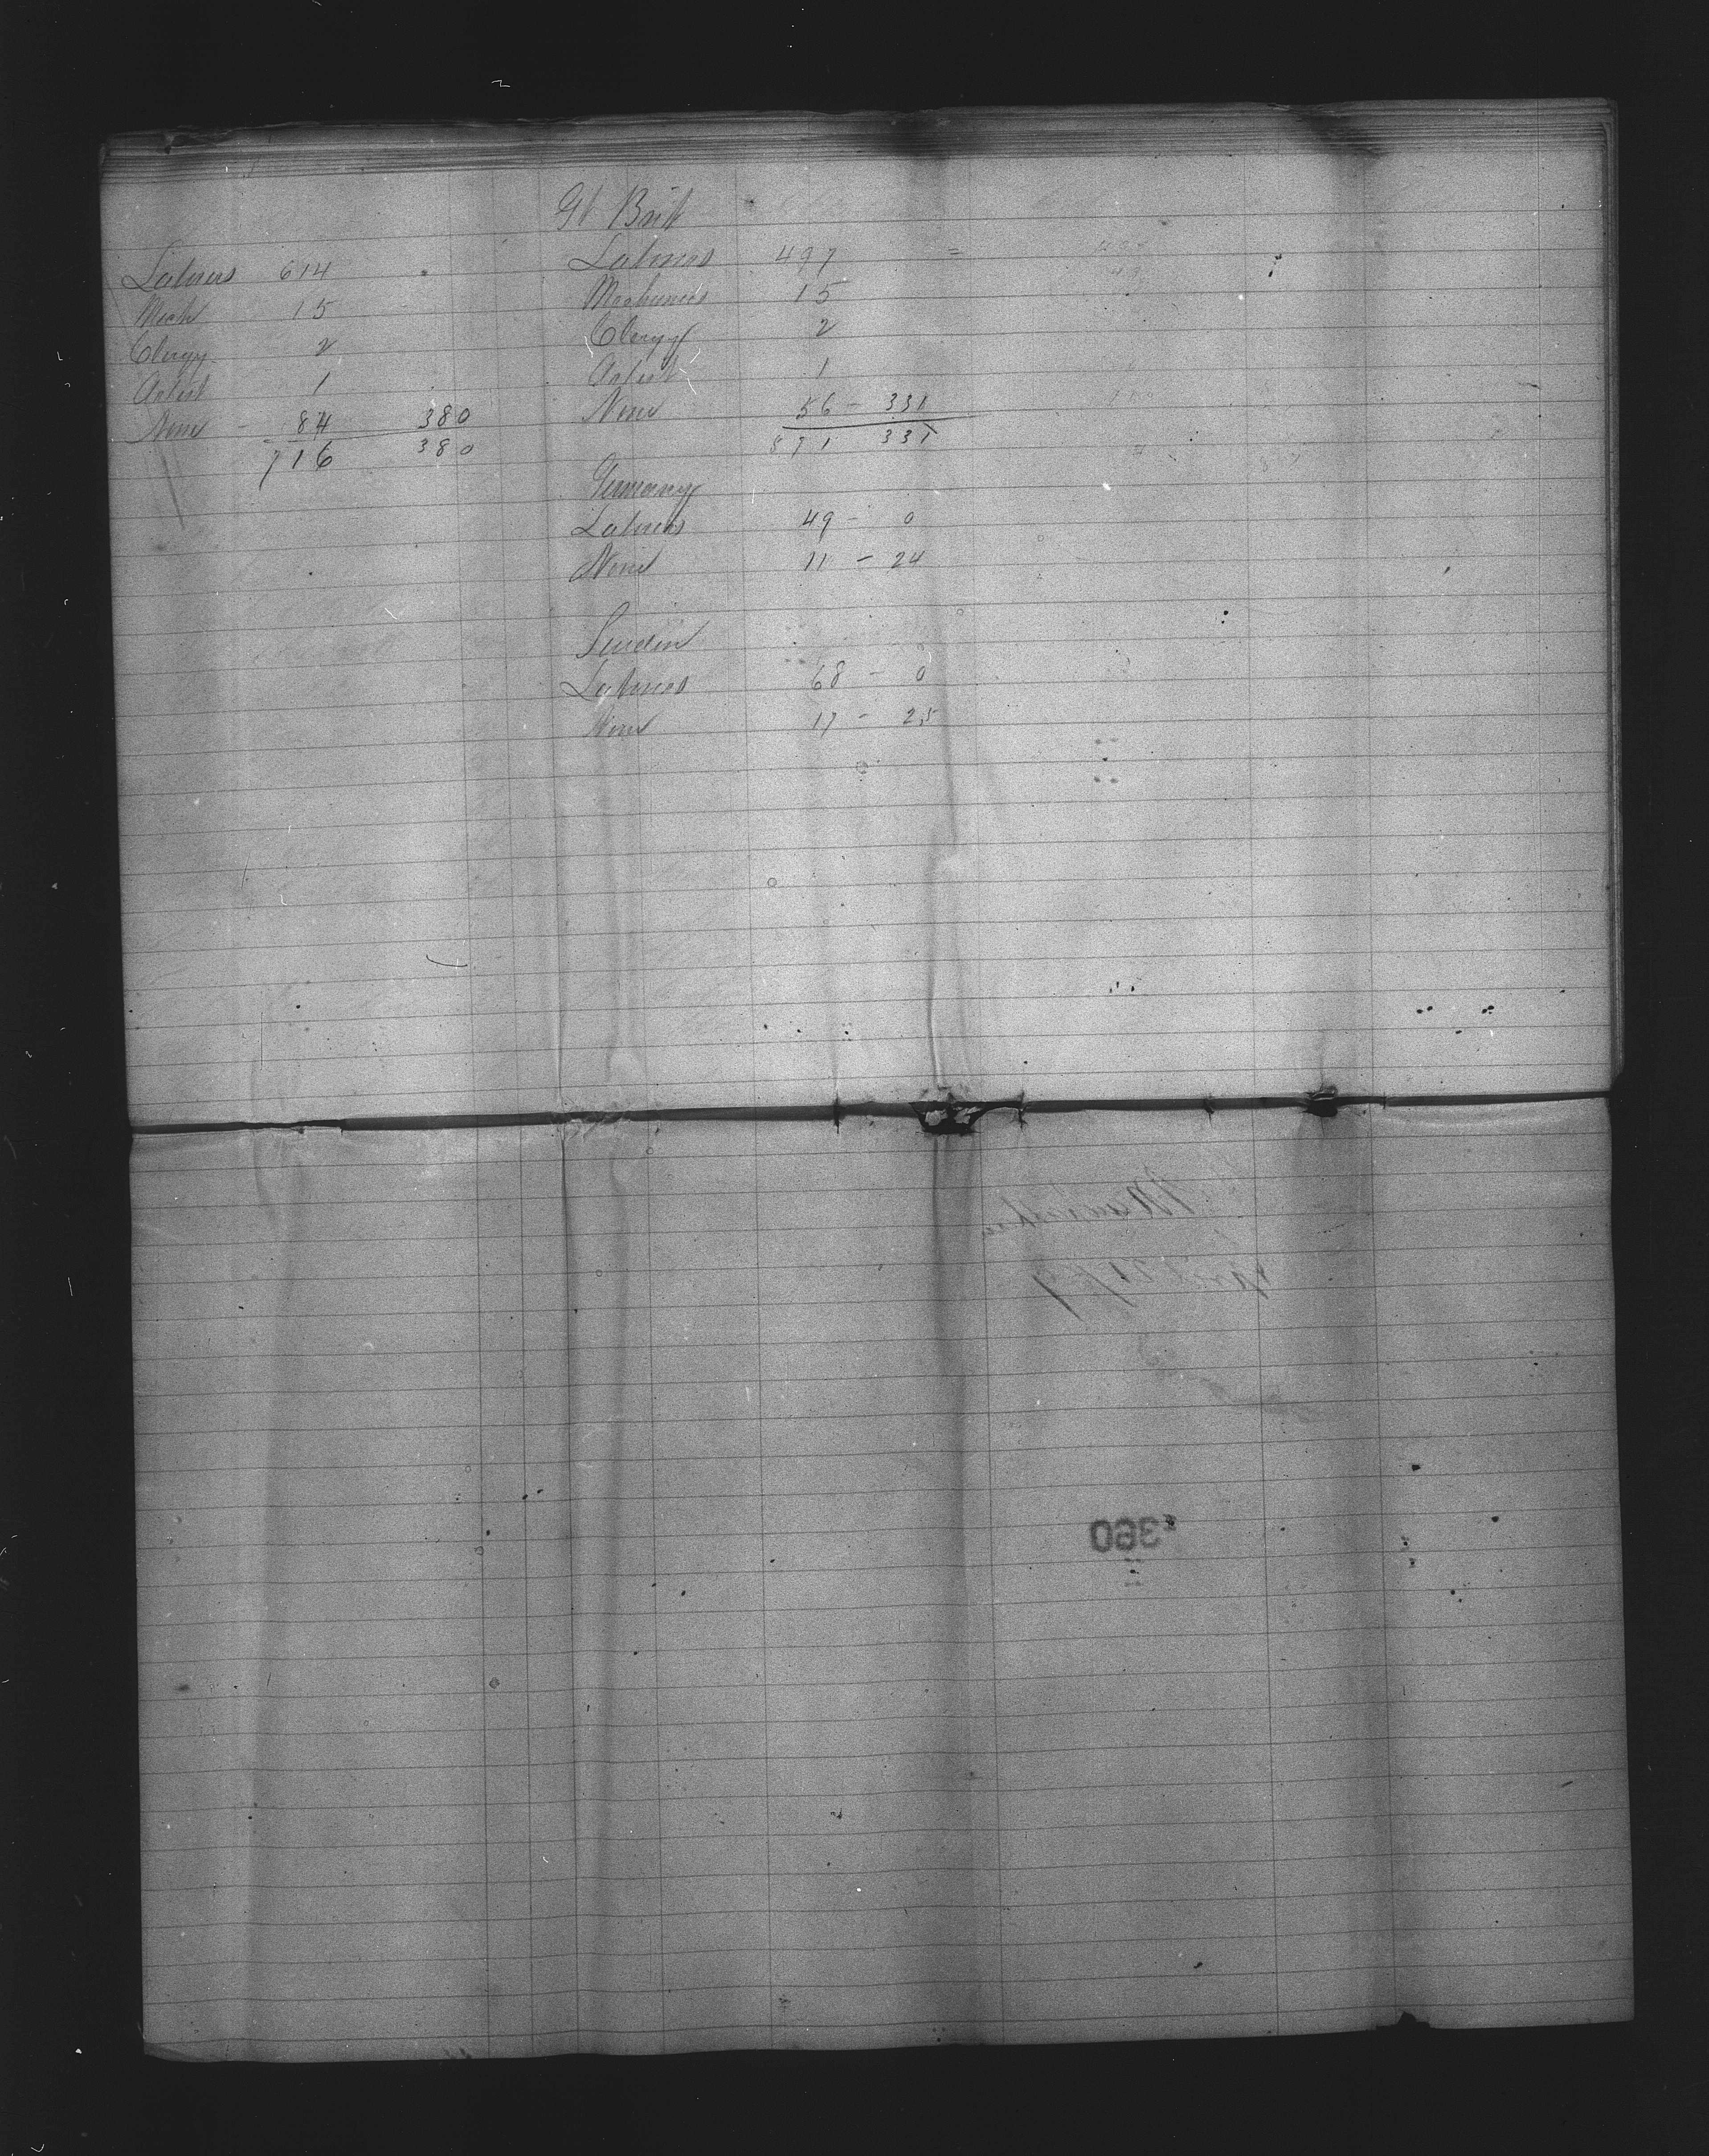 Laborers 614
Mech 15
Clergy 2
Artist 1
None - 84 380
716 380
Gt Brit
Labores 497 =
Mechanics 15
Clergy 2
Artist 1
None 56 - 331
571 331
Germany
Labores 49 - 0
None 11 - 24
Sweden
Labores 68 - 0
None 17 - 25
Manhattan
April 21/69
390